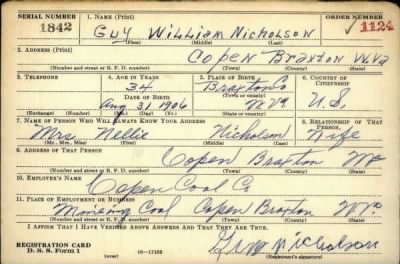 SERIAL NUMBER 1. NAME (Print) ORDER NUMBER
1842 Guy William Nicholson 1124
(First) (Middle) (Last)
2. ADDRESS (Print)
Copen Braxton W.Va
(Number and street or R. F. D. number) (Town) (County) (State)
3. TELEPHONE 4. AGE IN YEARS 5. PLACE OF BIRTH 6. COUNTRY OF CITIZENSHIP
34 Braxton Co
DATE OF BIRTH (Town or county)
Aug 31 1906 W Va U.S.
(Exchange) (Number) (Mo.) (Day) (Yr.) (State or country)
7. NAME OF PERSON WHO WILL ALWAYS KNOW YOUR ADDRESS 8. RELATIONSHIP OF THAT PERSON
Mrs. Nellie Nicholson Wife
(Mr., Mrs., Miss) (First) (Middle) (Last)
9. ADDRESS OF THAT PERSON
Copen Braxton W Va
(Number and street or R. F. D. number) (Town) (County) (State)
10. EMPLOYER'S NAME
Copen Coal Co
11. PLACE OF EMPLOYMENT OR BUSINESS
Coal Copen Braxton W Va.
(Number and street or R. F. D. number) (Town) (County) (State)
I AFFIRM THAT I HAVE VERIFIED ABOVE ANSWERS AND THAT THEY ARE TRUE.
REGISTRATION CARD
D. S. S. Form 1 (over) Nicholson
(Registrant's signature)